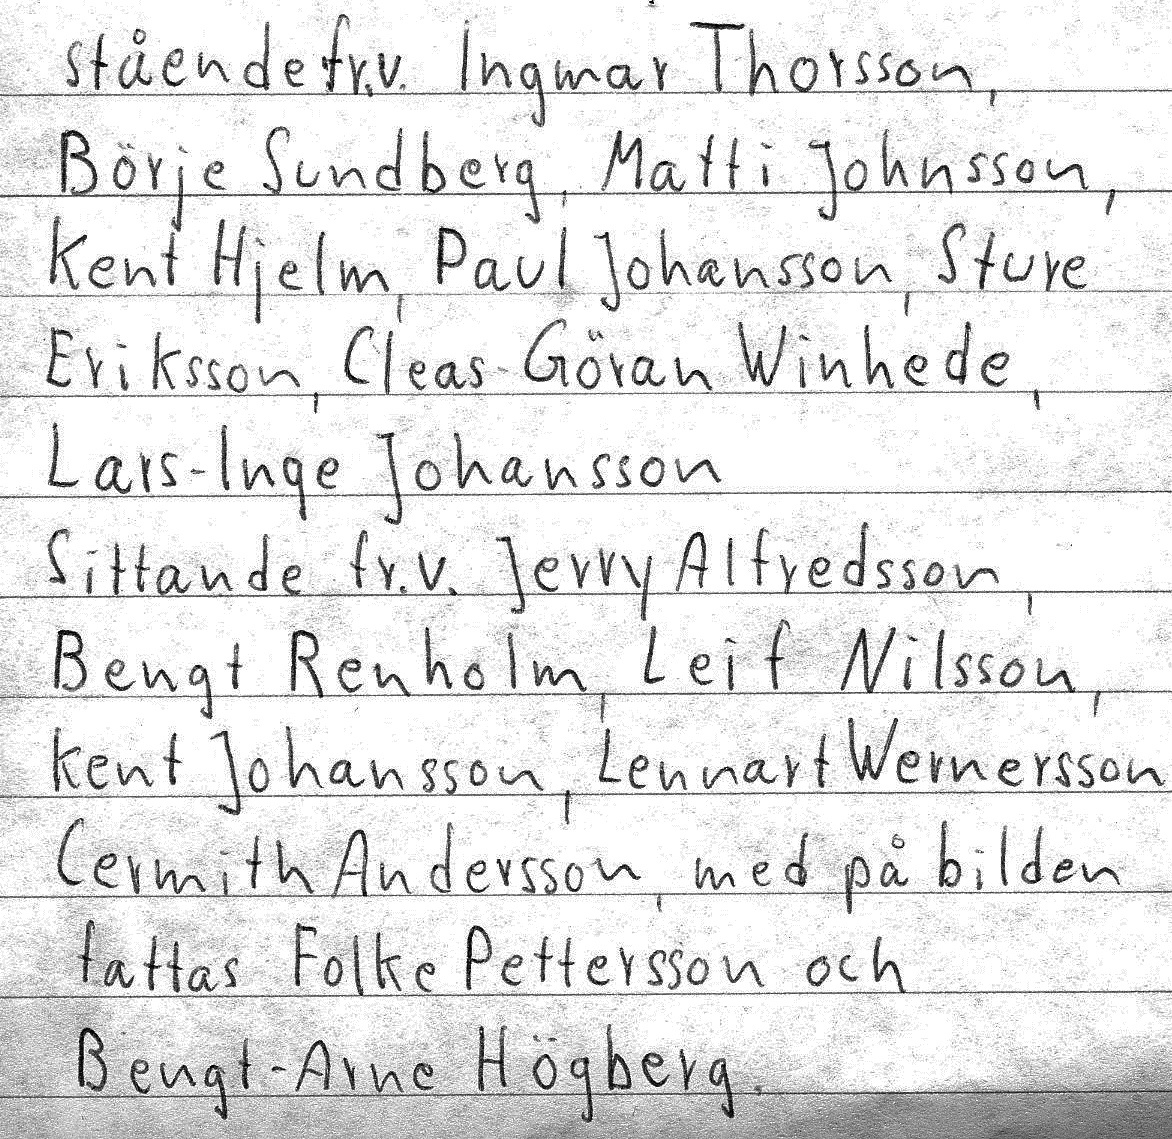 stående fr.v. Ingmar Thorsson,
Börje Sundberg, Matti Johnsson,
Kent Hjelm, Paul Johansson, Sture
Eriksson, Cleas-Göran Winhede,
Lars-Inge Johansson
Sittande fr.v. Jerry Alfredsson,
Bengt Renholm, Leif Nilsson,
Kent Johansson, Lennart Wernersson
Cermith Andersson, med på bilden
fattas Folke Pettersson och
Bengt-Arne Högberg.